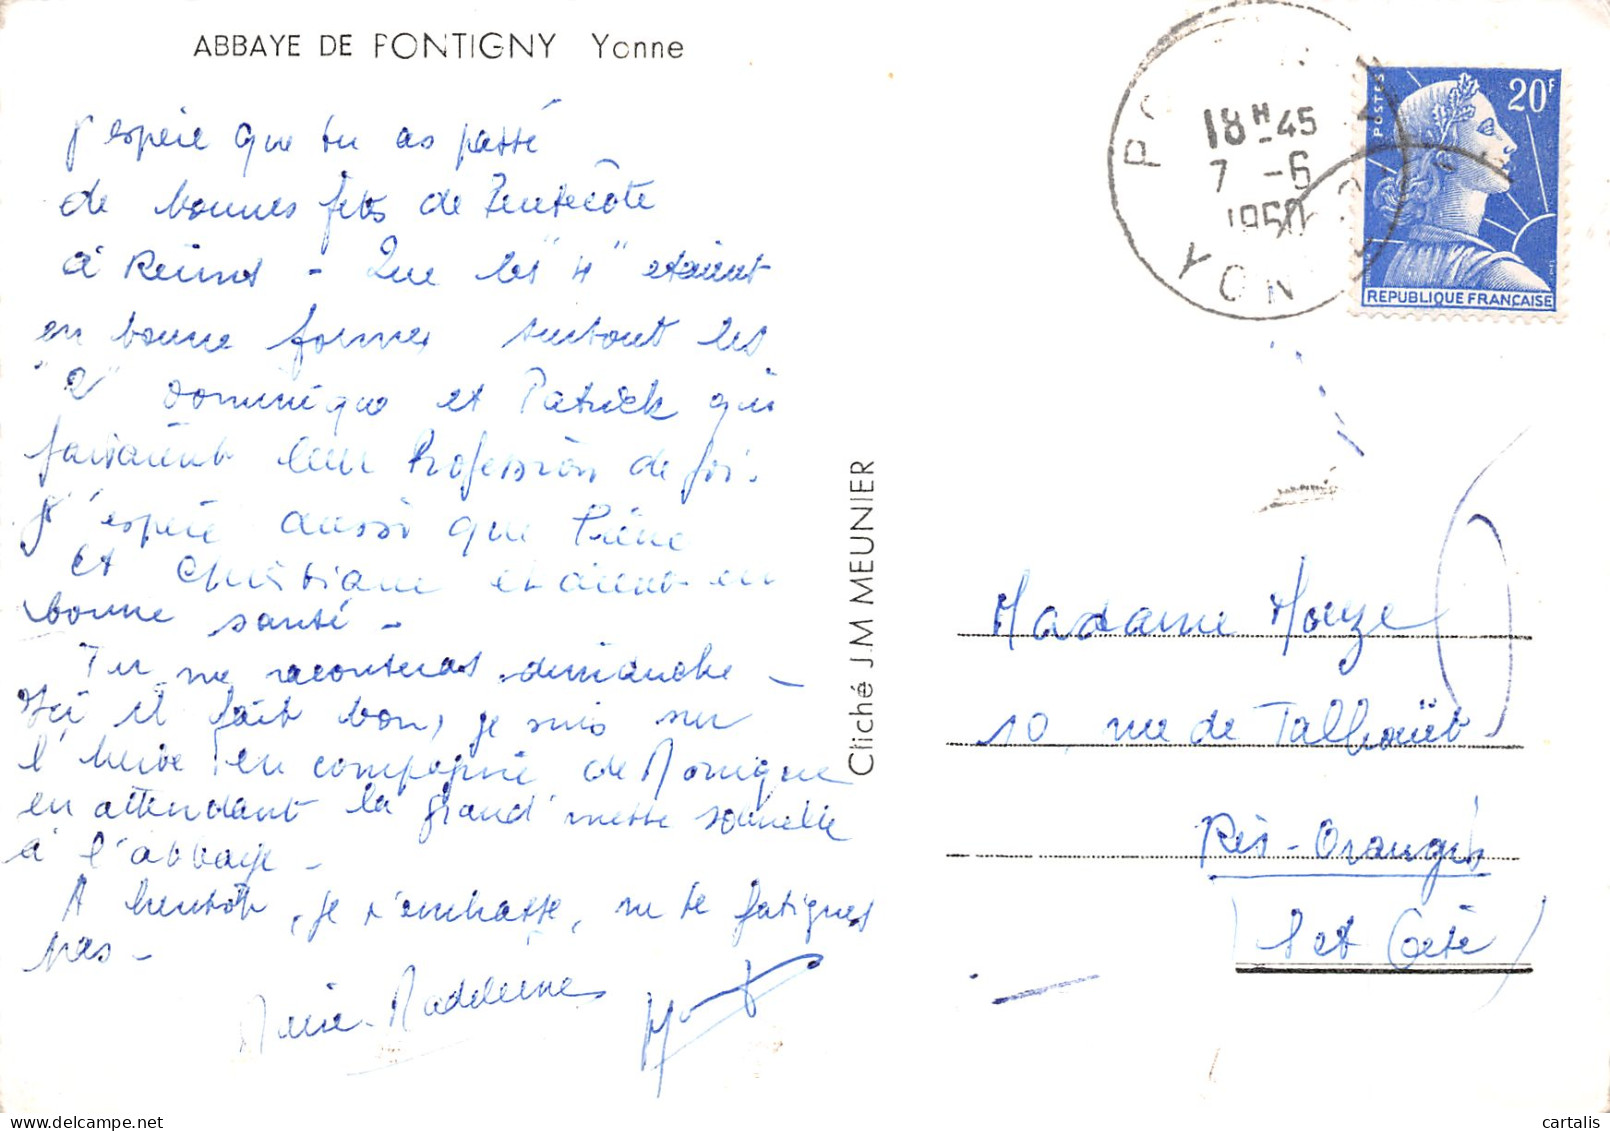 ABBAYE DE PONTIGNY Yonne
J'espère que tu as passé
de bonnes fêtes de Pentecôte
à Reims - Que les "4" étaient
en bonne formes surtout les
"2" Dominique et Patrick qui
faisaient leur Profession de foi.
J'espère aussi que Pierre
et Christiane étaient en
bonne santé -
Tu me raconteras dimanche -
Ici il fait bon, je suis sur
l'herbe en compagnie de Monique
en attendant la grand'messe solennelle
à l'abbaye -
A bientôt, je t'embrasse, ne te fatigues
pas -
Marie-Madeleine
Cliché J.M MEUNIER
18H-45
7 -6
1960
YONNE
POSTES
20F
REPUBLIQUE FRANÇAISE
Madame Mouze
10, rue de Talhouët
Ris-Orangis
(S et Oise)
cartalis